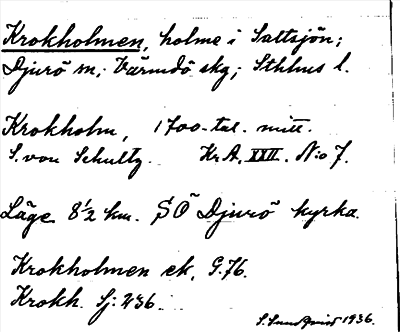 Krokholmen, holme i Saltsjön;
Djurö sn; Värmdö skg; Sthlms l.
Krokholm, 1700-tal. mitt.
S. von Schultz. Kr.A. XXII. N:o 7.
Läge 8 1/2 km. SO Djurö kyrka.
Krokholmen ek. G.76.
Krokh. Sj: 236.
S. Sundqvist 1936.